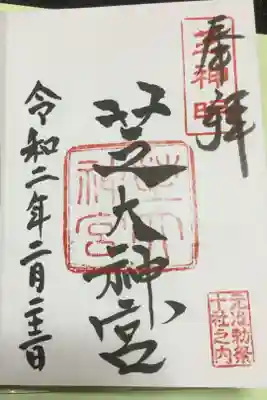 奉拝
芝神明
芝大神宮
芝大神宮
令和二年二月二十三日
元准勅祭
十社之内